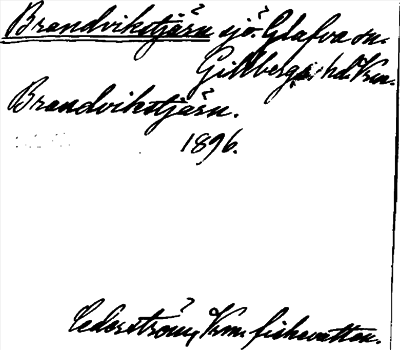 Brandvikstjärn sjö. Glafva sn.
Gillbergs hd. Vrm.
Brandvikstjärn.
1896.
Cederström, Vrm. fiskevatten.